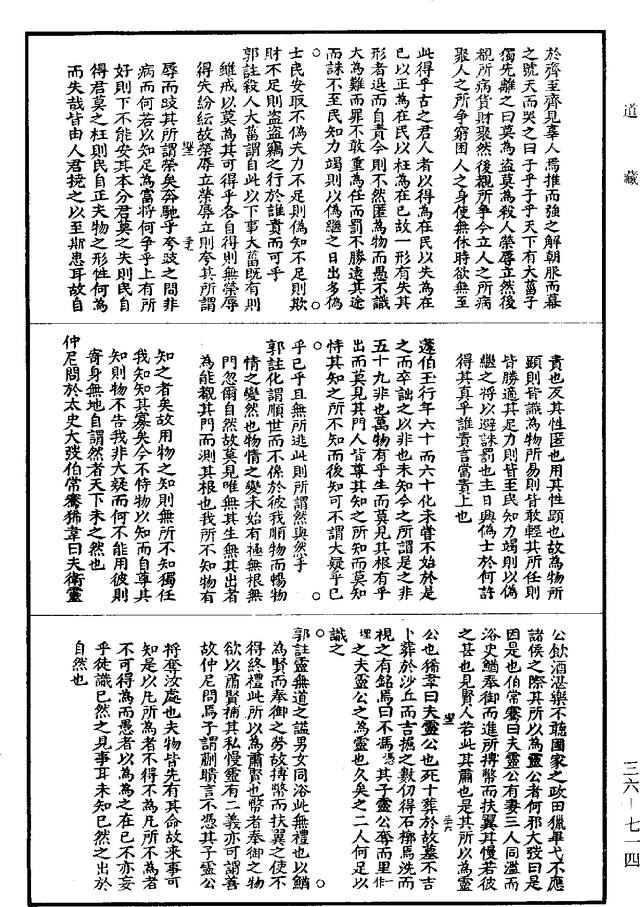 道藏
於齊至齊見辜人焉推而強之解朝服而幕
之號天而哭之曰子乎子乎天下有大菑子
獨先離之曰莫為盜莫為殺人榮辱立然後
覩所病貨財聚然後覩所爭今立人之所病
聚人之所爭窮困人之身使無休時欲無至
此得乎古之君人者以得為在民以失為在
已以正為在民以枉為在已故一形有失其
形者退而自責今則不然匿為物而愚不識
大為難而罪不敢重為任而罰不勝遠其途
而誅不至民知力竭則以偽繼之日出多偽
士民安取不偽夫力不足則偽知不足則欺
財不足則盜盜竊之行於誰責而可乎
郭註殺人大菑謂自此以下事大菑既有則
雖戒以莫為其可得乎各自得則無榮辱
得失紛紜故榮辱立榮辱立則夸其所謂
辱而跂其所謂榮矣奔馳乎夸跂之間非
病而何若以知足為富將何爭乎上有所
好則下不能安其本分君莫之失則民自
得君莫之枉則民自正夫物之形性何為
而失哉皆由人君撓之以至斯患耳故自
責也反其性匿也用其性顯也故為物所
顯則皆識為物所易則皆敢輕其所任則
皆勝適其足力則皆至民知力竭則以偽
繼之將以避誅罰也主日興偽士於何許
得其真乎誰責言當責上也
蘧伯玉行年六十而六十化未嘗不始於是
之而卒詘之以非也未知今之所謂是之非
五十九非也萬物有乎生而莫見其根有乎
出而莫見其門人皆尊其知之所知而莫知
恃其知之所不知而後知可不謂大疑乎已
乎已乎且無所逃此則所謂然與然乎
郭註化謂順世而不係於彼我順物而暢物
情之變然也物情之變未始有極無根無
門忽爾自然故莫見唯無其生無其出者
為能覩其門而測其根也我所不知物有
知之者矣故用物之知則無所不知獨任
我知知其寡矣今不恃物以知而自尊其
知則物不告我非大疑而何不能用彼則
寄身無地自謂然者天下未之然也
仲尼問於太史大弢伯常騫狶韋曰夫衛靈
公飲酒湛樂不聽國家之政田獵畢弋不應
諸侯之際其所以為靈公者何邪大弢曰是
因是也伯常騫曰夫靈公有妻三人同濫而
浴史鰌奉御而進所搏幣而扶翼其慢若彼
之甚也見賢人若此其肅也是其所以為靈
公也狶韋曰夫靈公也死卜葬於故墓不吉
卜葬於沙丘而吉掘之數仞得石槨焉洗而
視之有銘焉曰不馮其子靈公奪而里
之夫靈公之為靈也久矣之二人何足以
識之
郭註靈無道之諡男女同浴此無禮也以鰌
為賢而奉御之勞故搏幣而扶翼之使不
得終禮此所以為肅賢也幣者奉御之物
欲以肅賢補其私慢靈有二義亦可謂善
故仲尼問焉子謂蒯聵言不憑其子靈公
將奪汝處也夫物皆先有其命故來事可
知是以凡所為者不得不為凡所不為者
不可得為而愚者以為為之在已不亦妄
乎徒識已然之見事耳未知已然之出於
自然也
三六—七一四